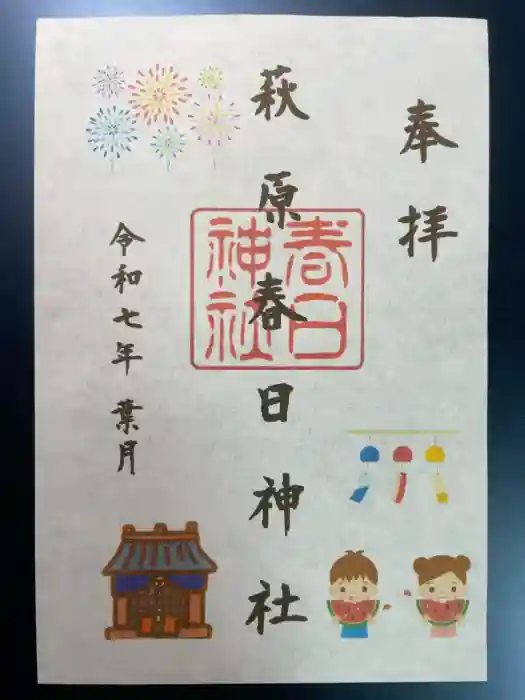 奉拝
萩原春日神社
春日
神社
令和七年 葉月